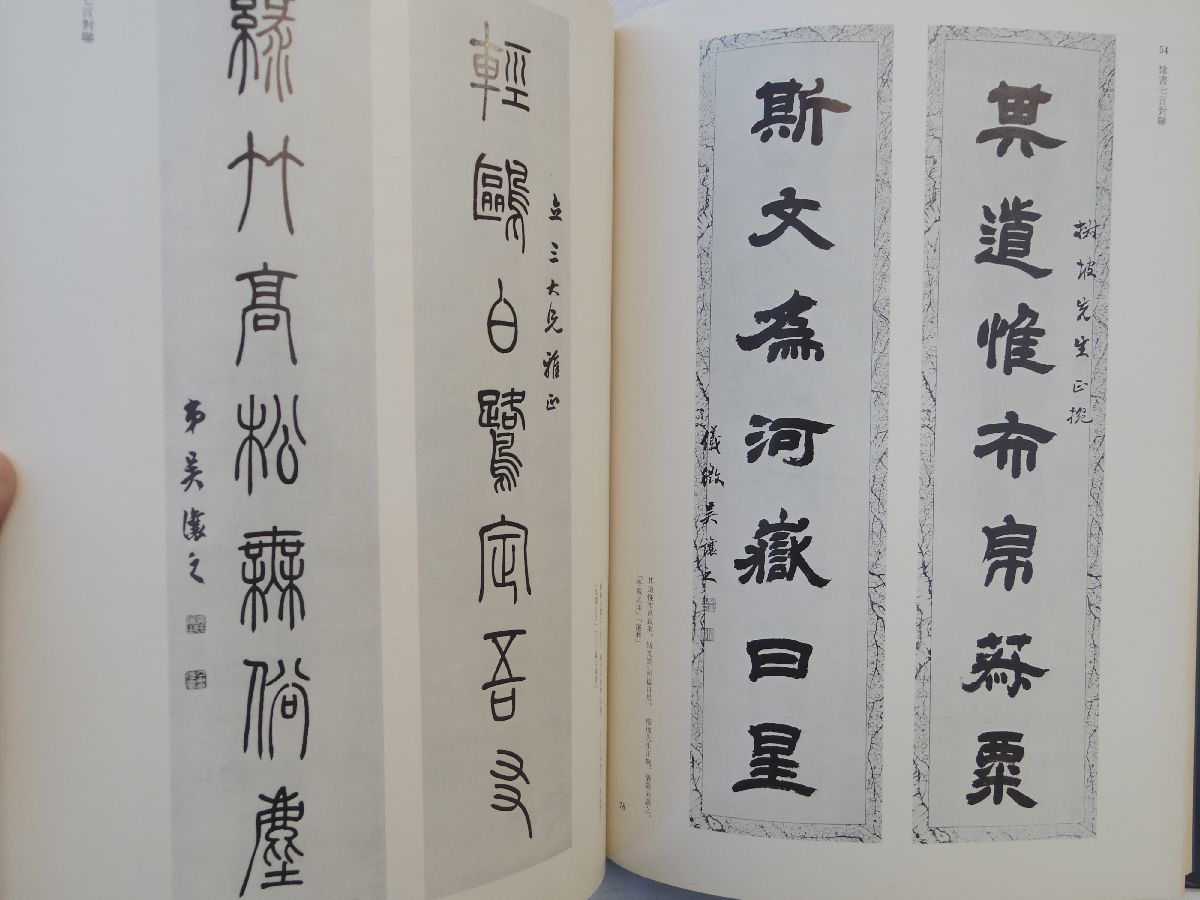 54 隸書七言對聯
其道惟布帛菽粟
樹坡先生正挽
斯文為河嶽日星
儀徵吳讓之
其道惟布帛菽粟。斯文為河嶽日星。樹坡先生正挽。儀徵吳讓之。
78
七言對聯
輕鷗白鷺定吾友
立三大兄雅正
綠竹高松無俗塵
弟吳讓之